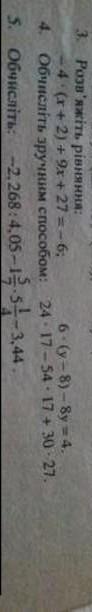 3. Розв'яжіть рівняння:
−4 · (x + 2) + 9x + 27 = −6; 6 · (y − 8) − 8y = 4.
4. Обчисліть зручним способом: 24 · 17 − 54 · 17 + 30 · 27.
5. Обчисліть: −2,268 : 4,05 − 1 5/7 · 5 1/4 − 3,44.